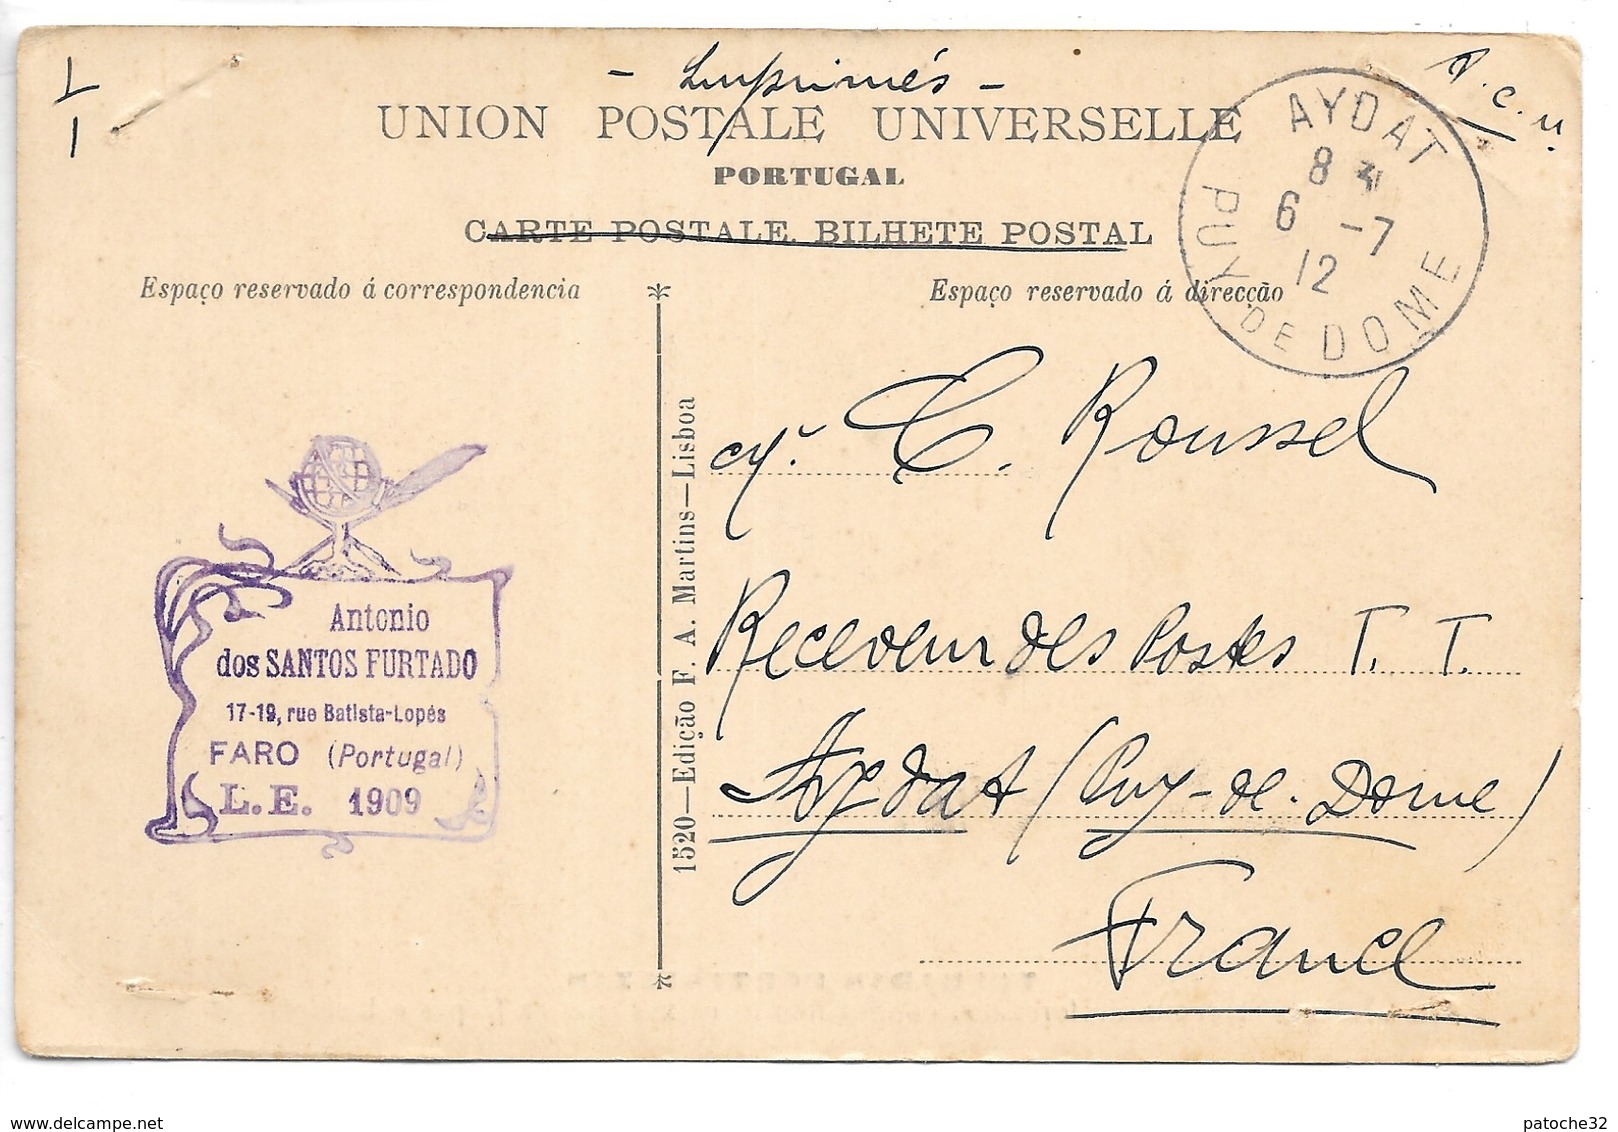 - Imprimés -
T.C.V.
UNION POSTALE UNIVERSELLE
PORTUGAL
CARTE POSTALE. BILHETE POSTAL
AYDAT
8
6 -7
12
PUY DE DOME
Espaço reservado á correspondencia
Espaço reservado á direcção
Antonio
dos SANTOS FURTADO
17-19, rue Batista-Lopés
FARO (Portugal)
L.E. 1909
1520—Edição F. A. Martins—Lisboa
C. Roussel
Receveur des Postes T. T.
Aydat (Puy-de-Dome)
France
www.delcampe.net
patoche32